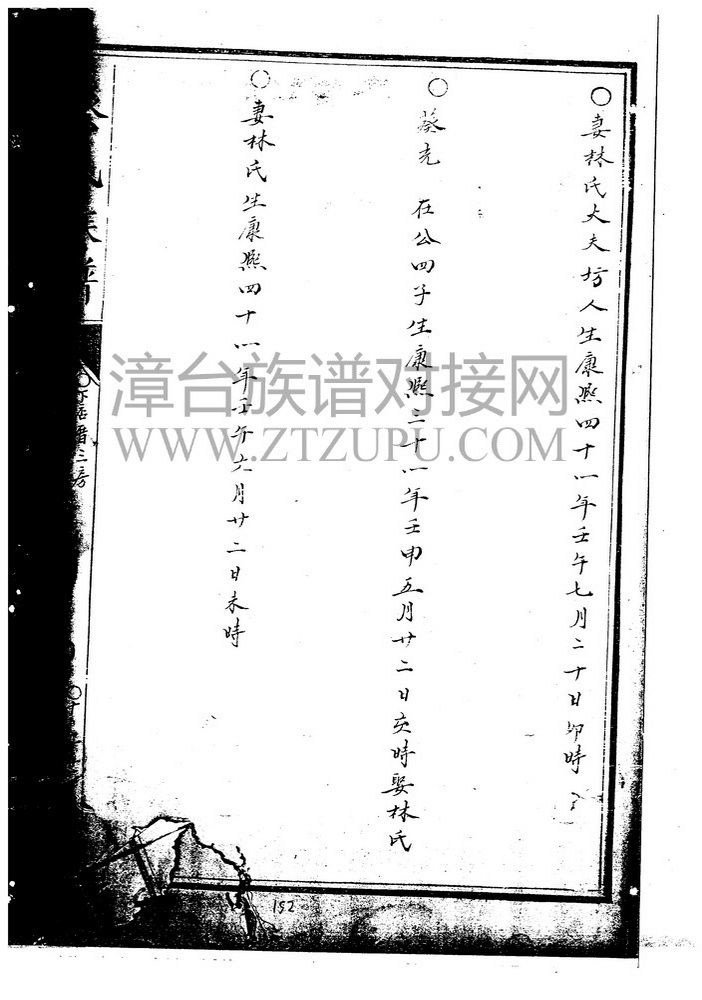 ○妻林氏大夫坊人生康熙四十一年壬午七月二十日卯時
○葵克 在公四子生康熙三十一年壬申五月廿二日亥時娶林氏
○妻林氏生康熙四十一年壬午六月廿二日未時
氏族譜
三房
漳台族谱对接网
WWW.ZTZUPU.COM
152